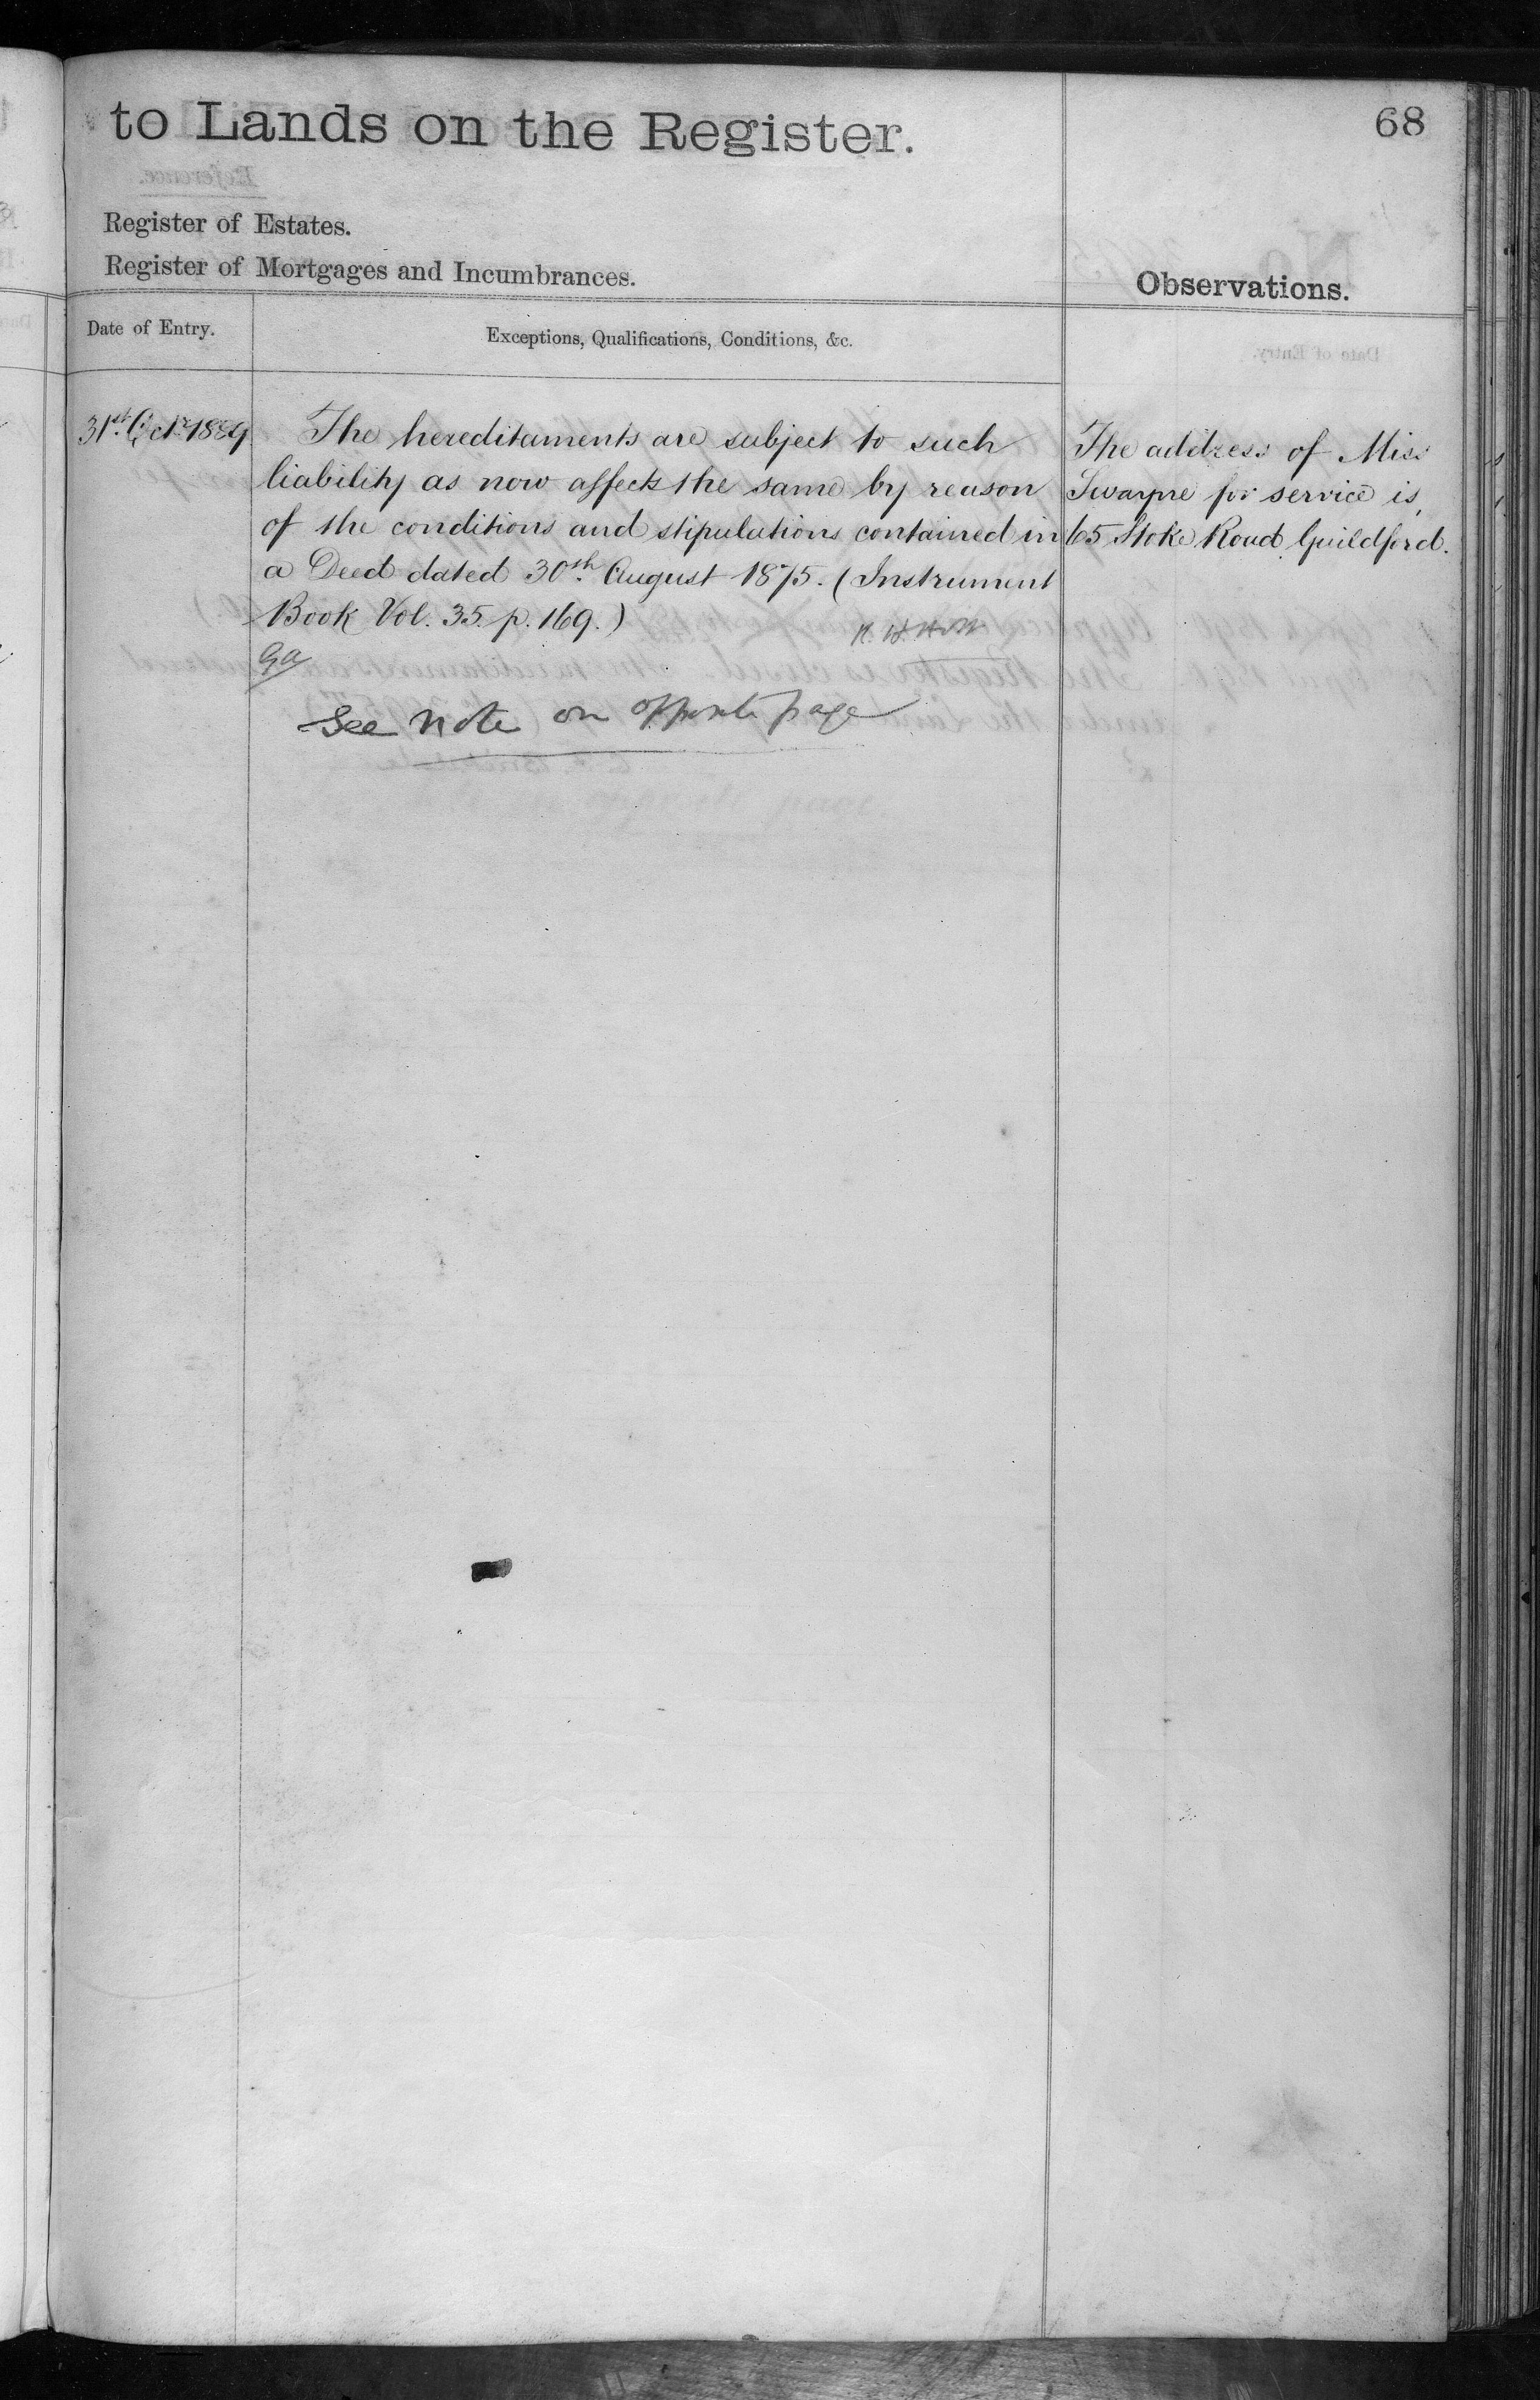 to Lands on the Register.
68
Register of Estates.
Register of Mortgages and Incumbrances.
Observations.
Date of Entry.
Exceptions, Qualifications, Conditions, &c.
31st Octr 1889
The hereditaments are subject to such
liability as now affects the same by reason
of the conditions and stipulations contained in
a Deed dated 30th August 1875. (Instrument
Book Vol. 35. p. 169.)
See note on opposite page
The address of Miss
Swayne for service is,
65 Stoke Road Guildford.